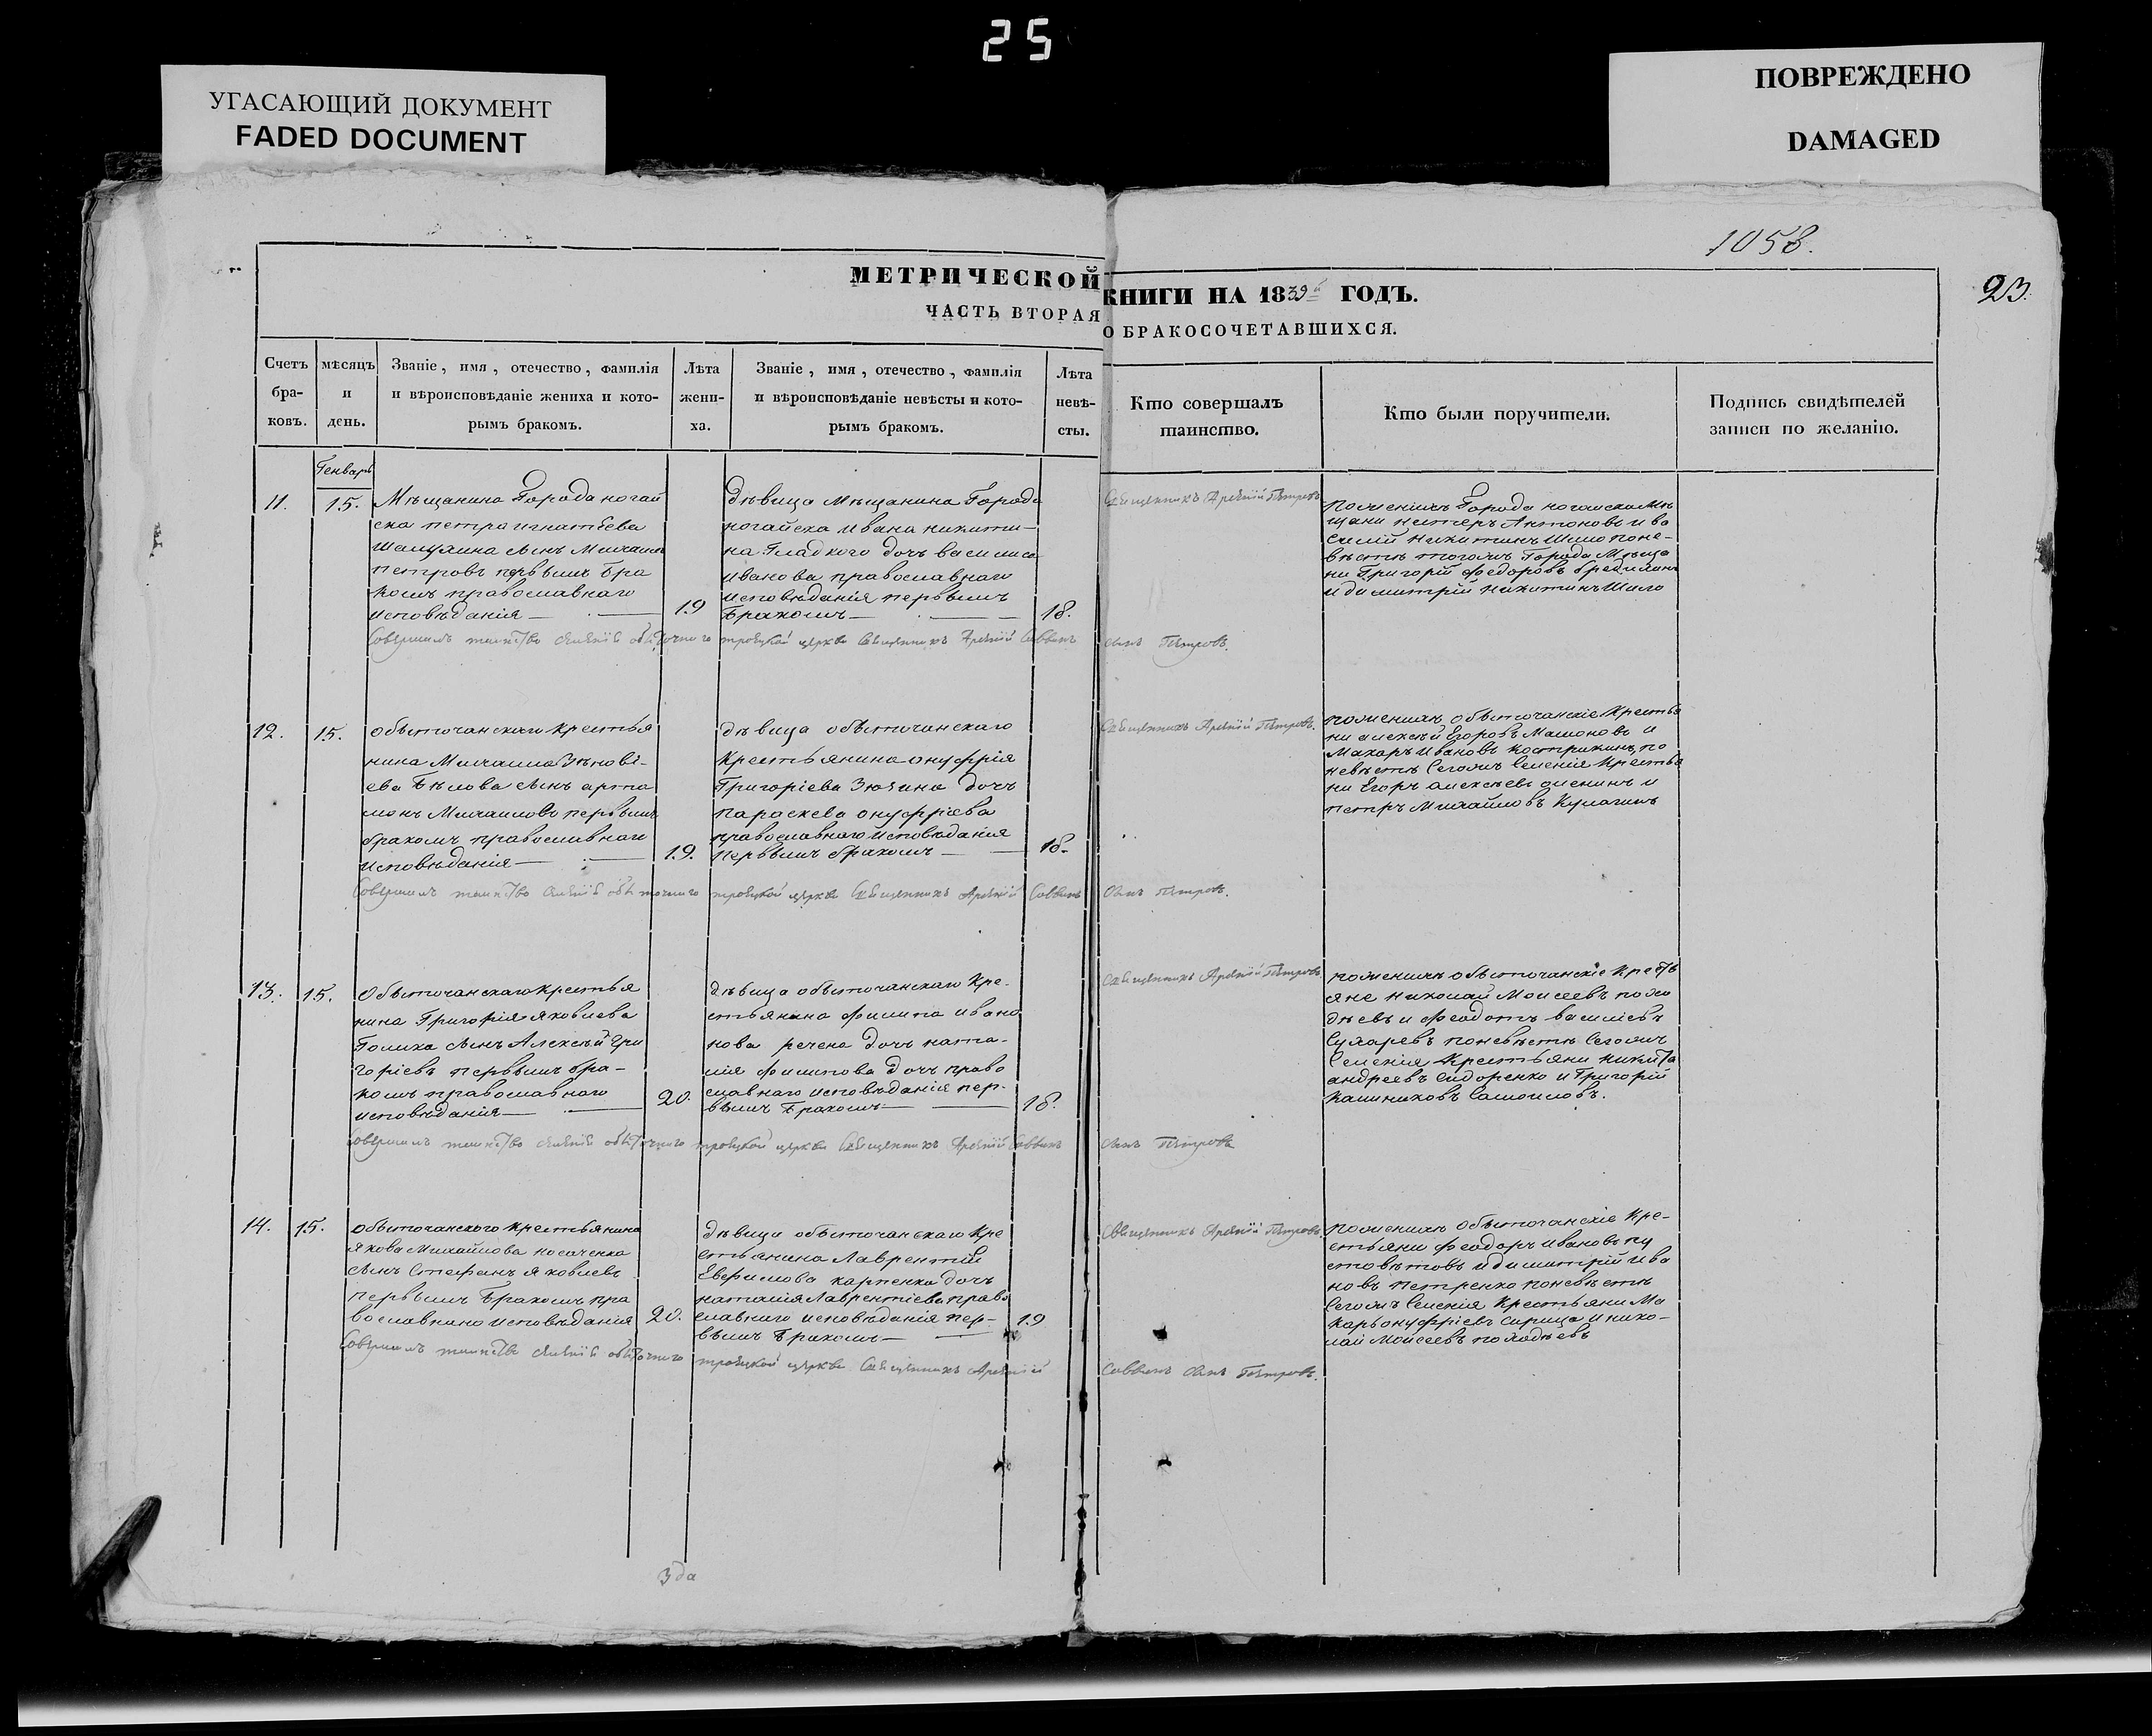 25
УГАСАЮЩИЙ ДОКУМЕНТ
FADED DOCUMENT
ПОВРЕЖДЕНО
DAMAGED
1058.
23.
МЕТРИЧЕСКОЙ КНИГИ НА 1839й ГОДЪ.
ЧАСТЬ ВТОРАЯ О БРАКОСОЧЕТАВШИХСЯ.
Счетъ бра- ковъ.
мѣсяцъ и день.
Званіе, имя, отечество, фамилія
и вѣроисповѣданіе жениха и кото-
рымъ бракомъ.
Лѣта жени- ха.
Званіе, имя, отечество, фамилія
и вѣроисповѣданіе невѣсты и кото-
рымъ бракомъ.
Лѣта невѣ- сты.
Кто совершалъ
таинство.
Кто были поручители.
Подпись свидѣтелей
записи по желанію.
Генварь
11.
15.
Мѣщанина Города ногай
ска петра игнатѣева
сынъ Михаилъ
петровъ первымъ бра
комъ православнаго
исповѣданія
19
Дѣвица Мѣщанина Города
ногайска ивана никити-
на Гладкого дочь василиса
иванова православнаго
исповѣданія первымъ
бракомъ
18.
Священникъ Арсеній Петровъ
поженихѣ Города ногайска Мѣ
щани петеръ Антоновъ и ва
силій никитинъ Шило поне-
вѣстѣ тогожъ Города Мѣща
ни Григорій федоровъ
и димитрій никитинъ Шило
Совершилъ таинство селенія обиточного троицкой церкви Священникъ Арсеній Саввинъ сынъ Петровъ.
12.
15.
обыточанскаго крестья
нина Михаила Зѣнові-
ева Бѣлова сынъ арта
монъ Михаиловъ первымъ
бракомъ православнаго
исповѣданія
19.
дѣвица обыточанскаго
крестьянина онуфрія
Григоріева Зюзина дочь
параскева онуфріева
православнаго исповѣданія
первымъ бракомъ
18.
Священникъ Арсеній Петровъ.
поженихѣ обыточанскіе крестья
ни алексѣй Егоровъ и
Макаръ ивановъ кострикинъ, по
невѣстѣ сегожъ селенія крестья
ни Егоръ алексѣевъ и
петръ Михайловъ Кулагинъ
Совершилъ таинство селенія обиточного троицкой церкви Священникъ Арсеній Саввинъ сынъ петровъ.
13.
15.
Обыточанскаго крестья
нина Григорія яковлева
Голика сынъ Алексѣй Гри
горіевъ первымъ бра-
комъ православнаго
исповѣданія
20.
дѣвица обыточанскаго кре-
стьянина филипа ивано
нова дочь ната-
лія филипова дочь право
славнаго исповѣданія пер-
вымъ бракомъ
18.
Священникъ Арсеній Петровъ.
поженихѣ обыточанскіе кресть
яне николай Моисеевъ
и феодотъ василіевъ
поневѣстѣ сегожъ
селенія крестьяни никита
андреевъ сидоренко и Григорій
Самоиловъ.
Совершилъ таинство селенія обиточного троицкой церкви Священникъ Арсеній Саввинъ сынъ Петровъ
14.
15.
обыточанского крестьянина
якова Михайлова носаченка
сынъ Стефанъ яковлевъ
первымъ бракомъ пра
вославнаго исповѣданія
20.
дѣвица обыточанскаго кре
стьянина Лаврентія
Евфимова карпенка дочь
наталія Лаврентіева право
славнаго исповѣданія пер-
вымъ бракомъ
19
Священникъ Арсеній Петровъ.
поженихѣ обыточанскіе кре-
стьяни феодоръ ивановъ пу
стовѣтовъ и димитрій ива
новъ петренко поневѣстѣ
сегожъ селенія крестьяни Ма
каръ онуфріевъ сирица и нико-
лай Моисеевъ
Совершилъ таинство селенія обиточного троицкой церкви Священникъ Арсеній Саввинъ сынъ Петровъ.